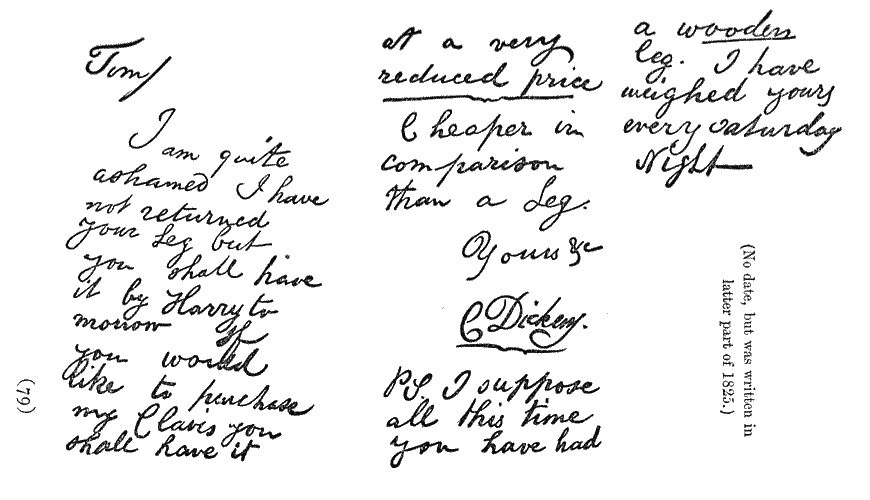 Tom/
I am quite
ashamed I have
not returned
your Leg but
you shall have
it by Harry to
morrow If
you would
like to purchase
my Clavis you
shall have it
at a very
reduced price
Cheaper in
comparison
than a Leg.
Yours &c
C Dickens.
PS. I suppose
all this time
you have had
a wooden
leg. I have
weighed yours
every Saturday
Night
(No date, but was written in
latter part of 1825.)
(79)